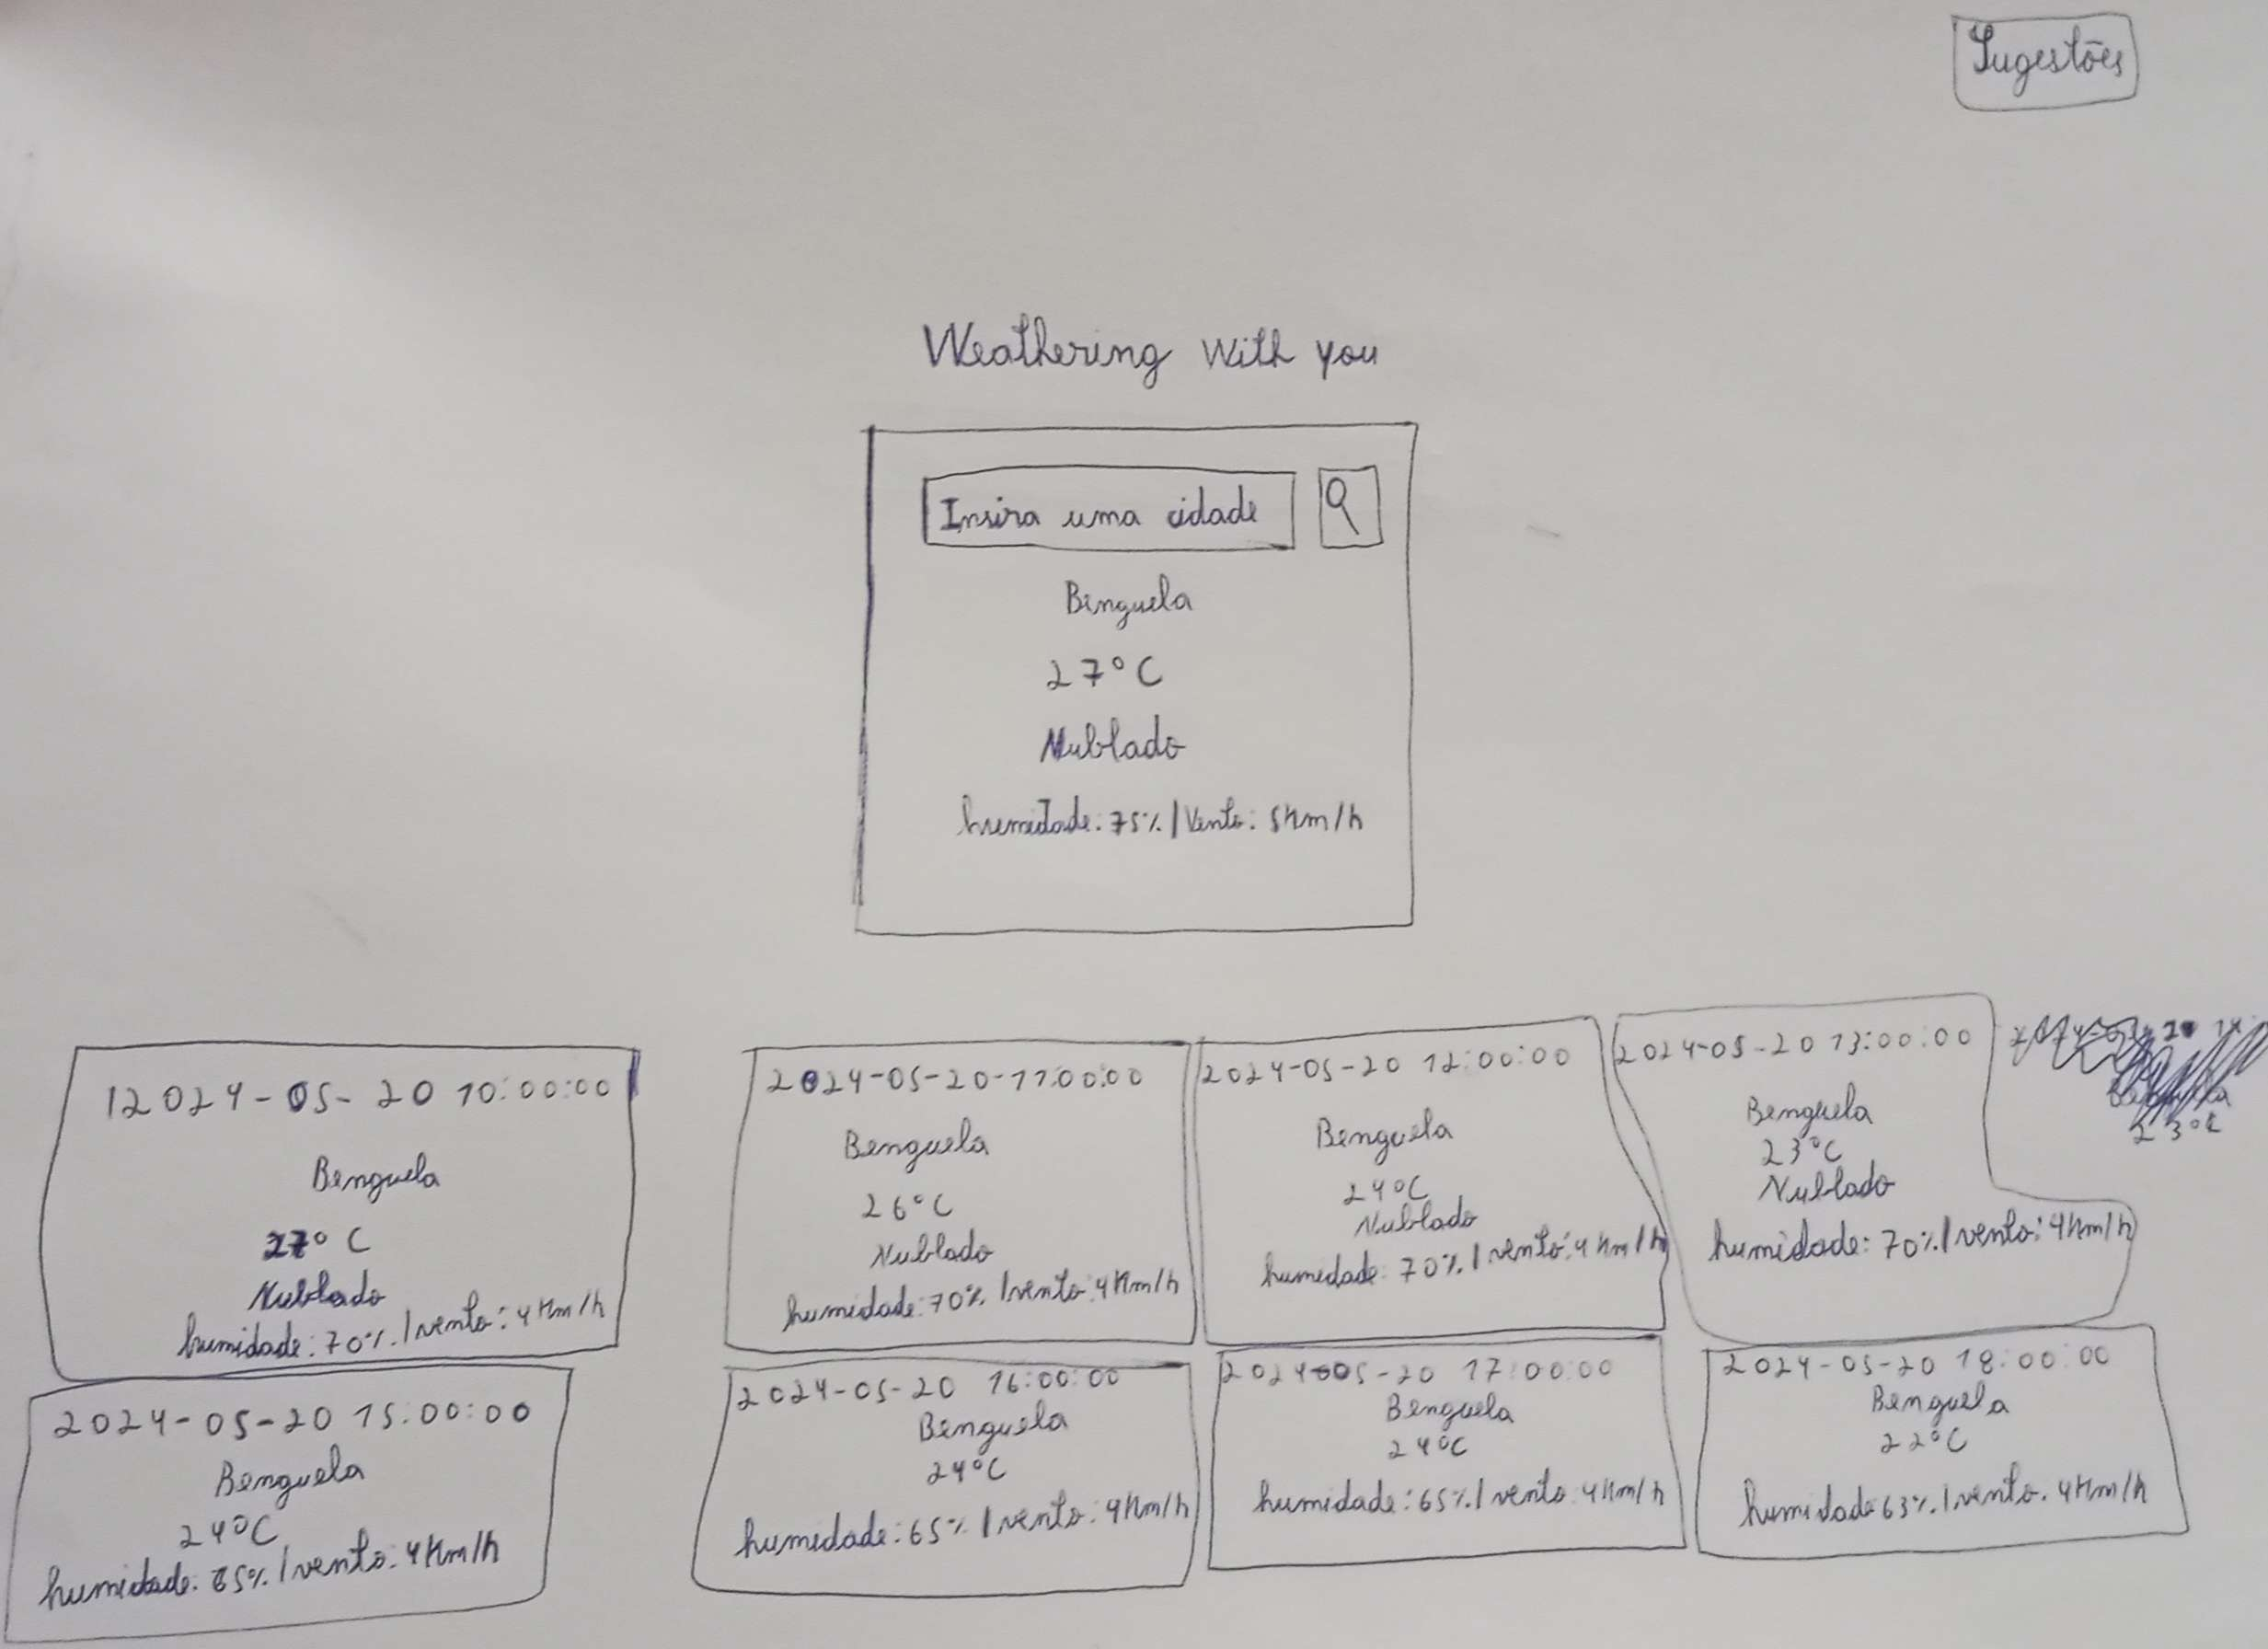 Sugestões
Weathering with you
Insira uma cidade
Benguela
27°C
Nublado
humidade: 75% | Vento: 5Km/h
12024-05-20 10:00:00
Benguela
27°C
Nublado
humidade: 70% | vento: 4Km/h
2024-05-20-11:00:00
Benguela
26°C
Nublado
humidade: 70% | vento: 4Km/h
2024-05-20 12:00:00
Benguela
24°C
Nublado
humidade: 70% | vento: 4Km/h
2024-05-20 13:00:00
Benguela
23°C
Nublado
humidade: 70% | vento: 4Km/h
23°C
2024-05-20 15:00:00
Benguela
24°C
humidade: 65% | vento: 4Km/h
2024-05-20 16:00:00
Benguela
24°C
humidade: 65% | vento: 4Km/h
2024-05-20 17:00:00
Benguela
24°C
humidade: 65% | vento: 4Km/h
2024-05-20 18:00:00
Benguela
22°C
humidade 63% | vento: 4Km/h